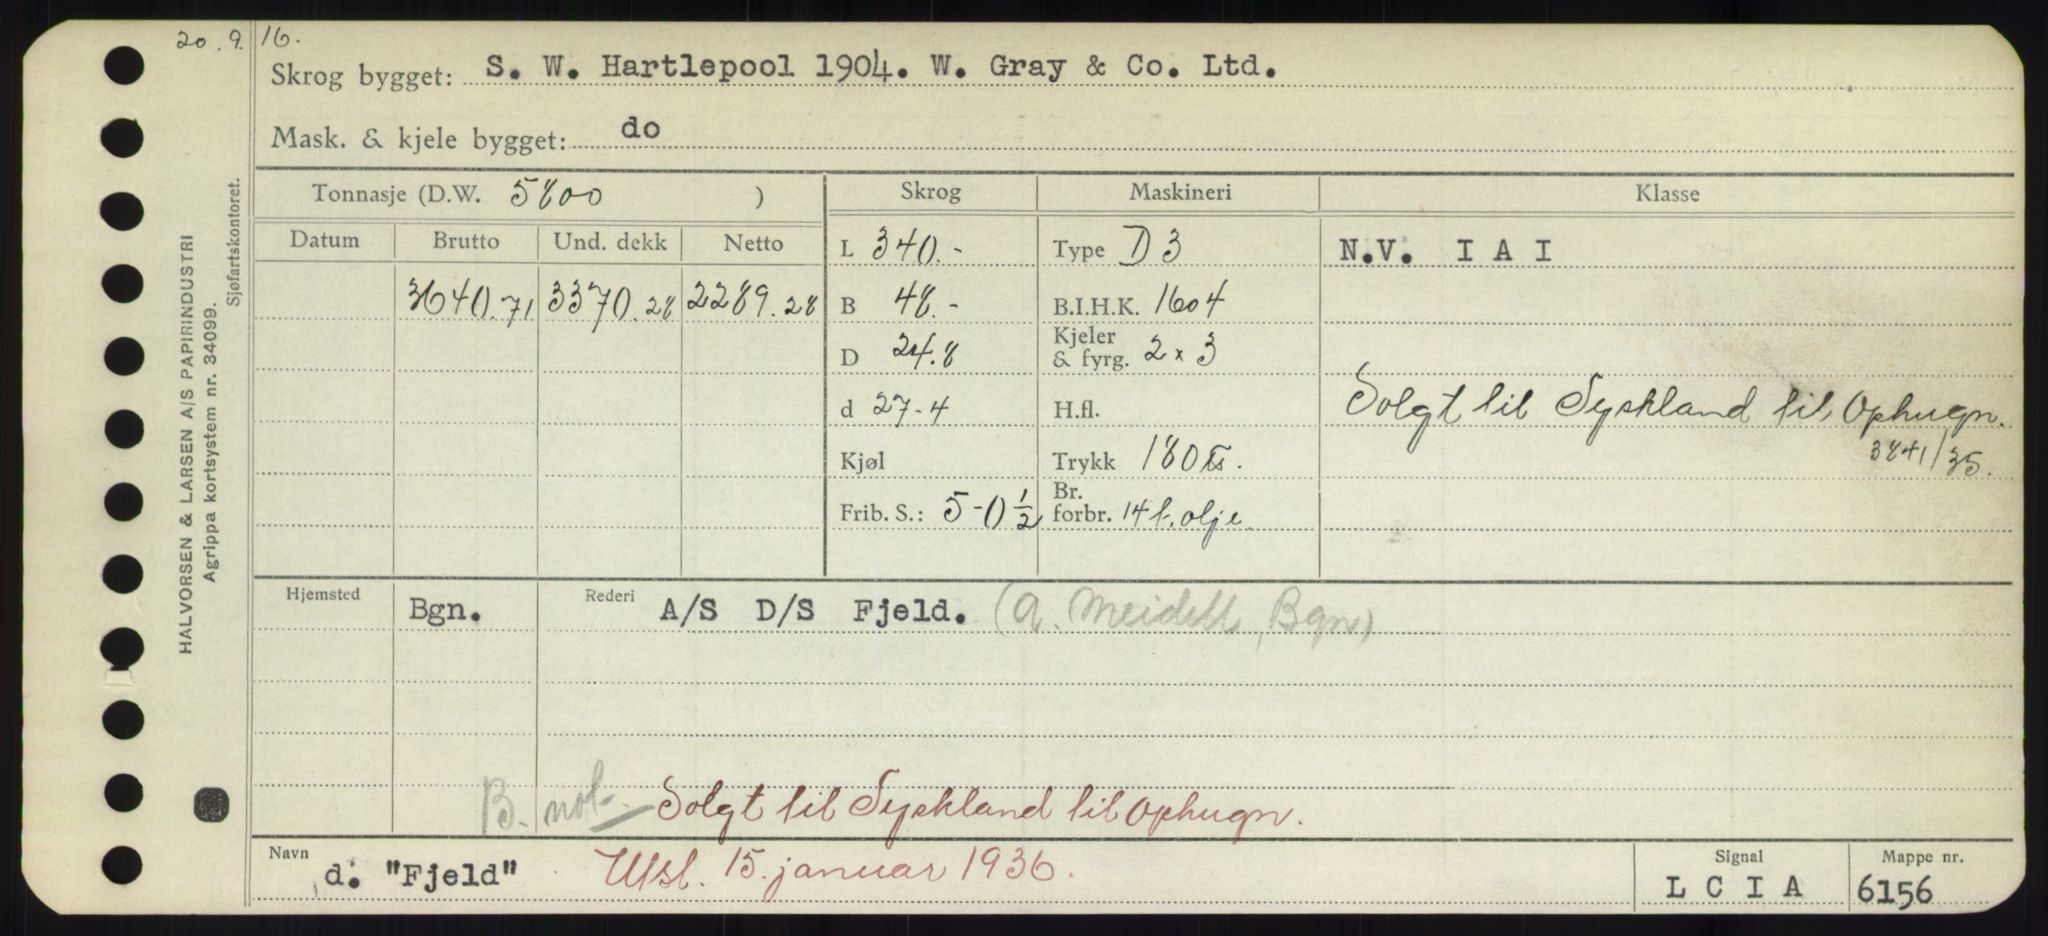 20. 9. 16.
Skrog bygget: S. W. Hartlepool 1904. W. Gray & Co. Ltd.
Mask. & kjele bygget: do
Tonnasje (D.W. 5800 ) Skrog Maskineri Klasse
Datum Brutto Und. dekk Netto
L 340.- Type D3 N.V. I A I
3640.71 3370.28 2289.28 B 48.- B.I.H.K. 1604
D 24.8 Kjeler & fyrg. 2 x 3
d 27-4 H.fl. Solgt til Tyskland til Ophugn.
Kjøl Trykk 180 3841/35.
Frib. S.: 5-0½ Br. forbr. 14 t. olje.
Hjemsted Bgn. Rederi A/S D/S Fjeld. (A. Meidell, Bgn)
B. not. Solgt til Tyskland til Ophugn.
Navn d. "Fjeld" Utsl. 15. januar 1936. Signal L C I A Mappe nr. 6156
HALVORSEN & LARSEN A/S PAPIRINDUSTRI
Agrippa kortsystem nr. 34099.
Sjøfartskontoret.